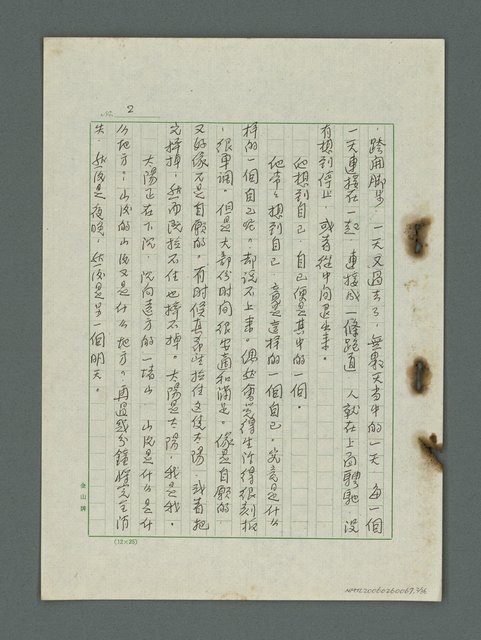 No. 2
，跨開脚步，一天又過去了，無數天當中的一天，每一個
一天連接在一起，連接成一條跑道，人就在上面騁馳，沒
有想到停止，或者從中間退出來。
他想到自己，自己便是其中的一個。
他常常想到自己，竟是這樣的一個自己。究竟是什么
樣的一個自己呢？却說不上來。偶然會覺得生活得很刻板
，很單調。但是大部份時間很安適和滿足。像是自願的，
又好像不是自願的。有時候真希望拉住這個太陽，或者把
它摔掉，然而既拉不住也摔不掉。太陽是太陽，我是我。
太陽正在下沉，沉向遠方的一堵山，山後是什么是什
么地方？山後的山後又是什么地方？再過幾分鐘牠完全消
失，然後是夜晚，然後是另一個明天。
金山牌
(12×25)
NMTL20060260067 7/36